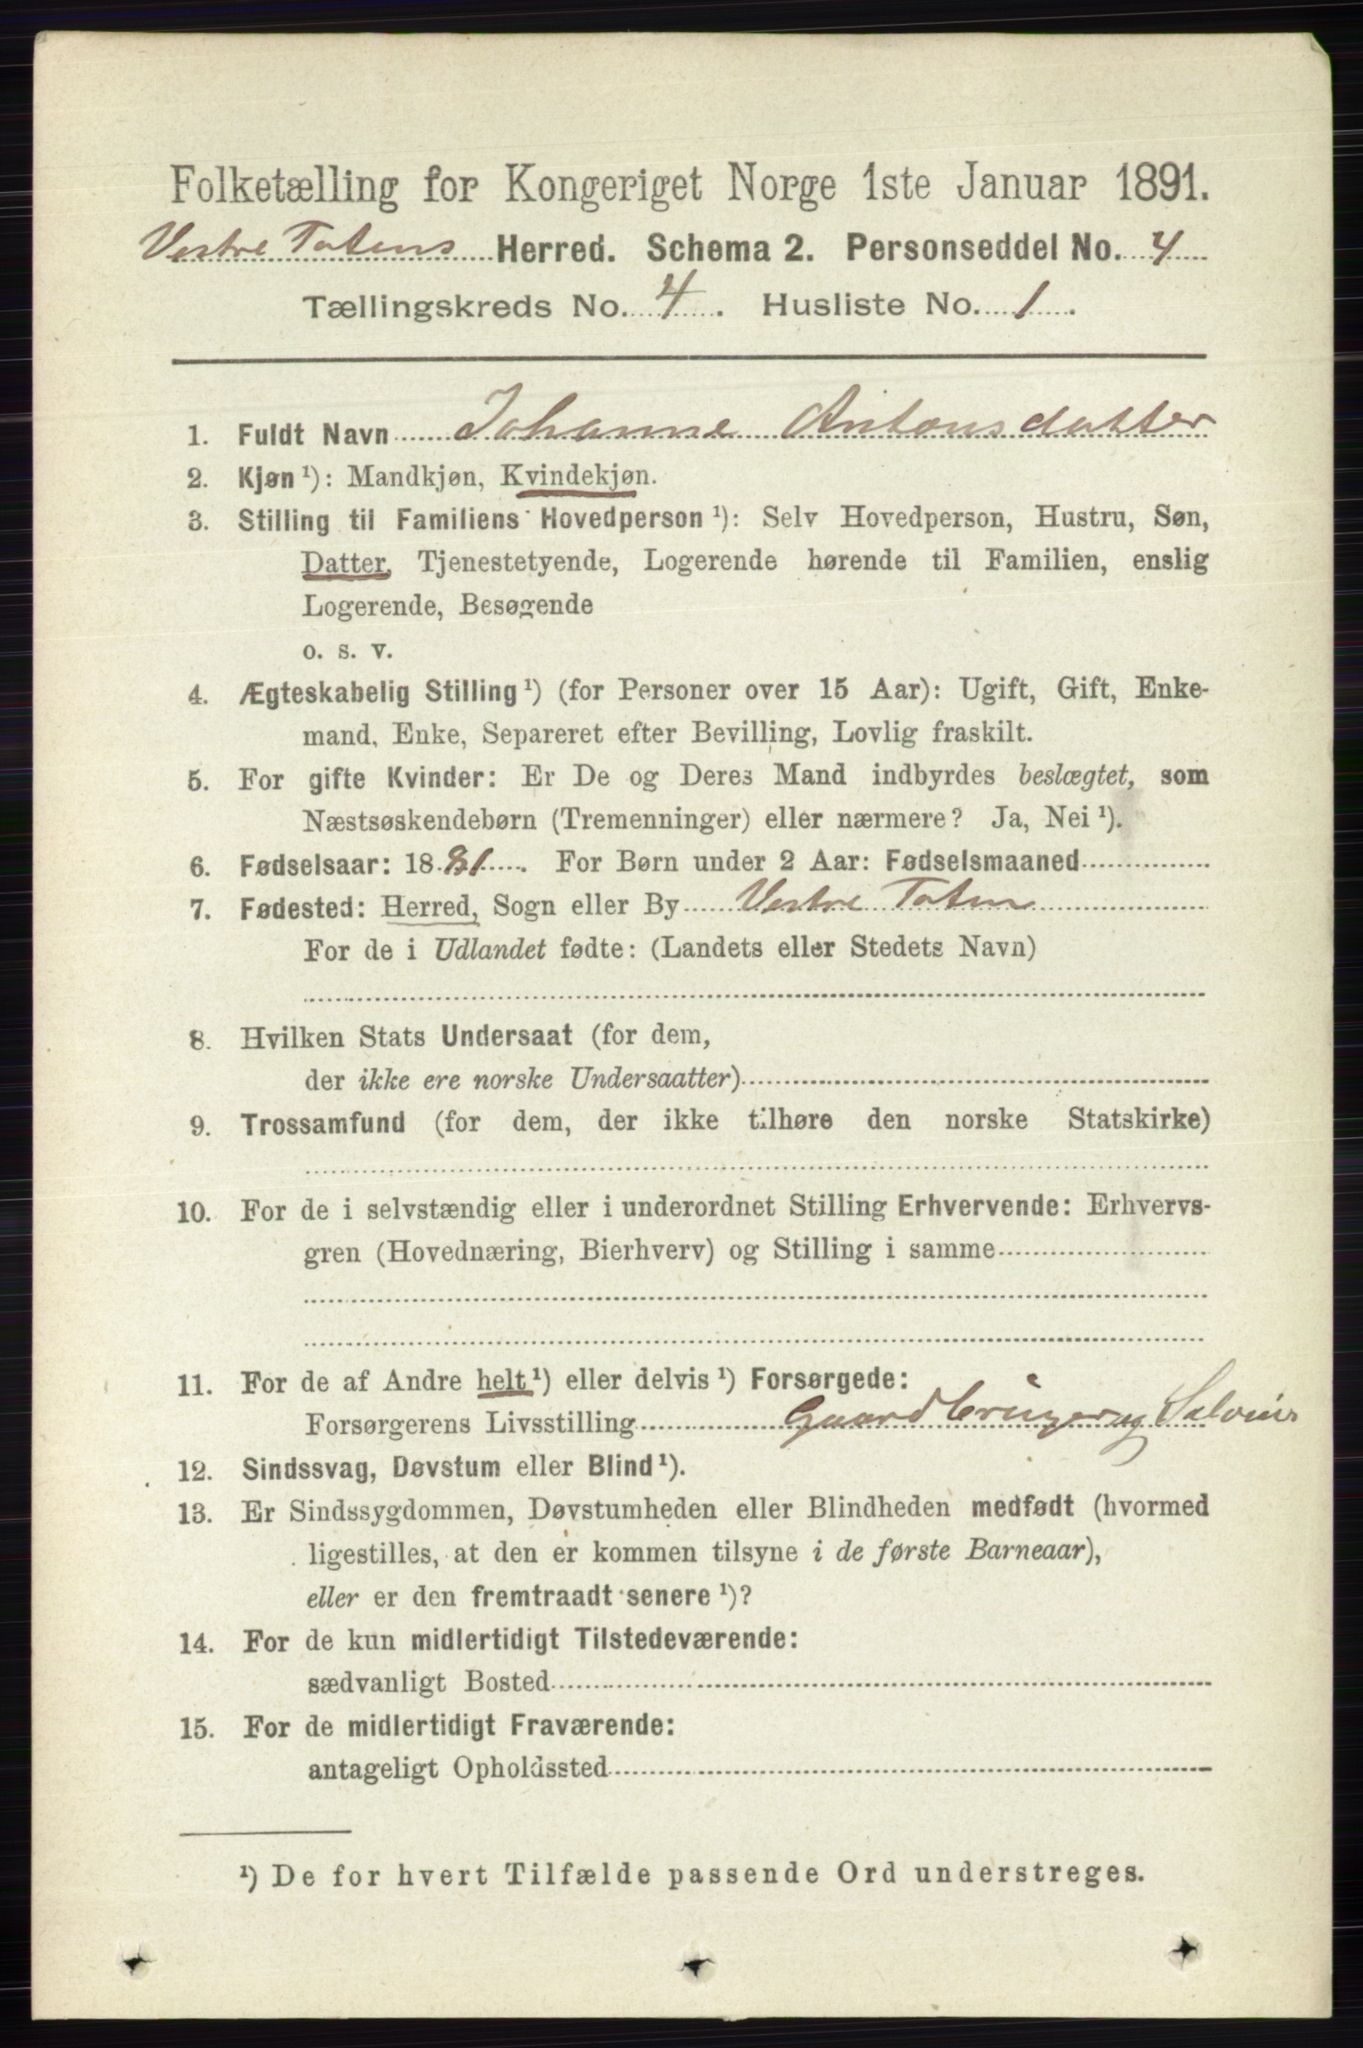 Folketælling for Kongeriget Norge 1ste Januar 1891.
Vestre Totens Herred. Schema 2. Personseddel No. 4
Tællingskreds No. 4. Husliste No. 1.
1. Fuldt Navn Johanne Antonsdatter
2. Kjøn ¹): Mandkjøn, Kvindekjøn.
3. Stilling til Familiens Hovedperson ¹): Selv Hovedperson, Hustru, Søn,
Datter, Tjenestetyende, Logerende hørende til Familien, enslig
Logerende, Besøgende
o. s. v.
4. Ægteskabelig Stilling ¹) (for Personer over 15 Aar): Ugift, Gift, Enke-
mand, Enke, Separeret efter Bevilling, Lovlig fraskilt.
5. For gifte Kvinder: Er De og Deres Mand indbyrdes beslægtet, som
Næstsøskendebørn (Tremenninger) eller nærmere? Ja, Nei ¹).
6. Fødselsaar: 1881. For Børn under 2 Aar: Fødselsmaaned
7. Fødested: Herred, Sogn eller By Vestre Toten
For de i Udlandet fødte: (Landets eller Stedets Navn)
8. Hvilken Stats Undersaat (for dem,
der ikke ere norske Undersaatter)
9. Trossamfund (for dem, der ikke tilhøre den norske Statskirke)
10. For de i selvstændig eller i underordnet Stilling Erhvervende: Erhvervs-
gren (Hovednæring, Bierhverv) og Stilling i samme
11. For de af Andre helt ¹) eller delvis ¹) Forsørgede:
Forsørgerens Livsstilling Gaardbruger og Selveier
12. Sindssvag, Døvstum eller Blind ¹).
13. Er Sindssygdommen, Døvstumheden eller Blindheden medfødt (hvormed
ligestilles, at den er kommen tilsyne i de første Barneaar),
eller er den fremtraadt senere ¹)?
14. For de kun midlertidigt Tilstedeværende:
sædvanligt Bosted
15. For de midlertidigt Fraværende:
antageligt Opholdssted
¹) De for hvert Tilfælde passende Ord understreges.